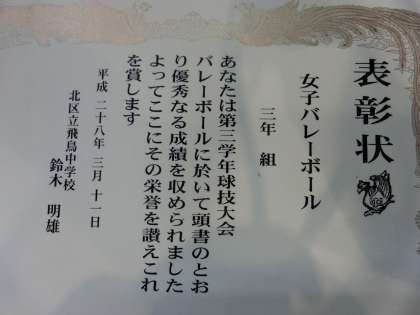 表彰状
女子バレーボール
三年 組
あなたは第三学年球技大会
バレーボールに於いて頭書のとお
り優秀なる成績を収められました
よってここにその栄誉を讃えこれ
を賞します
平成 二十八年 三月 十一日
北区立飛鳥中学校
鈴木 明雄